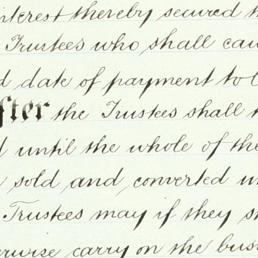 interest thereby secured th
Trustees who shall cau
d date of payment to b
fter the Trustees shall
d until the whole of the
sold and converted
Trustees may if they s
erwise carry on the busi